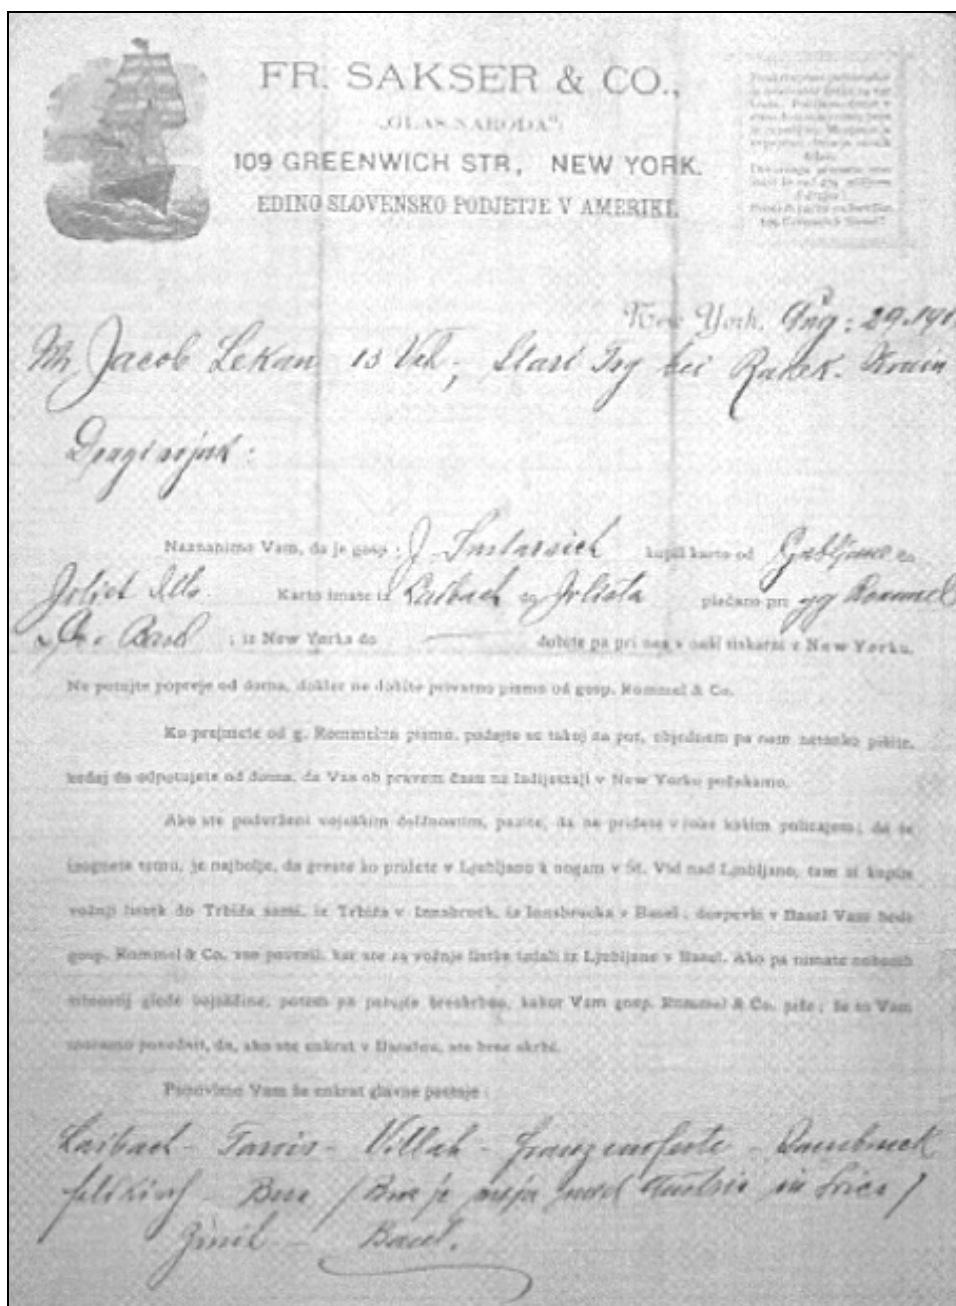 FR. SAKSER & CO.,
„GLAS NARODA“
109 GREENWICH STR, NEW YORK.
EDINO SLOVENSKO PODJETJE V AMERIKI.
New York, Aug: 29.
Mr Jacob Lekan 15 Vek; Stari Trg bei Rakek. Krain
Dragi rojak:
Naznanimo Vam, da je gosp: J. kupil karto od do
Joliet Ills. Karto imate iz Laibach v Jolieta plačano pri gg Rommel
& Co v Basel; iz New Yorka do dobite pa pri nas v naši tiskarni v New Yorku.
Ne potujte popreje od doma, dokler ne dobite privatno pismo od gosp. Rommel & Co.
Ko prejmete od g. Rommelna pismo, podajte se takoj na pot, objednem pa nam natanko pišite,
kedaj da odpotujete od doma, da Vas ob pravem času na ladijostaji v New Yorku počakamo.
Ako ste podvrženi vojaškim dolžnostim, pazite, da ne pridete v roke kakim policajem; da se
izognete temu, je najbolje, da greste ko pridete v Ljubljano k nogam v Št. Vid nad Ljubljano, tam si kupite
vožnji listek do Trbiža sami, iz Trbiža v Innsbruck, iz Innsbrucka v Basel; dospevši v Basel Vam bode
gosp. Rommel & Co. vse povrnil, kar ste za vožnje listke izdali iz Ljubljane v Basel. Ako pa nimate nobenih
sitnostij glede vojaščine, potem pa potujte brezskrbno, kakor Vam gosp. Rommel & Co. piše; še to Vam
moramo povedati, da, ako ste enkrat v Baselnu, ste brez skrbi.
Ponovimo Vam še enkrat glavne postaje:
Laibach - Tarvis - Villah - Franzensfeste - Innsbruck
Feldkirch - Bux / Bux je meja med Austrio in Švico /
Zürich - Basel.